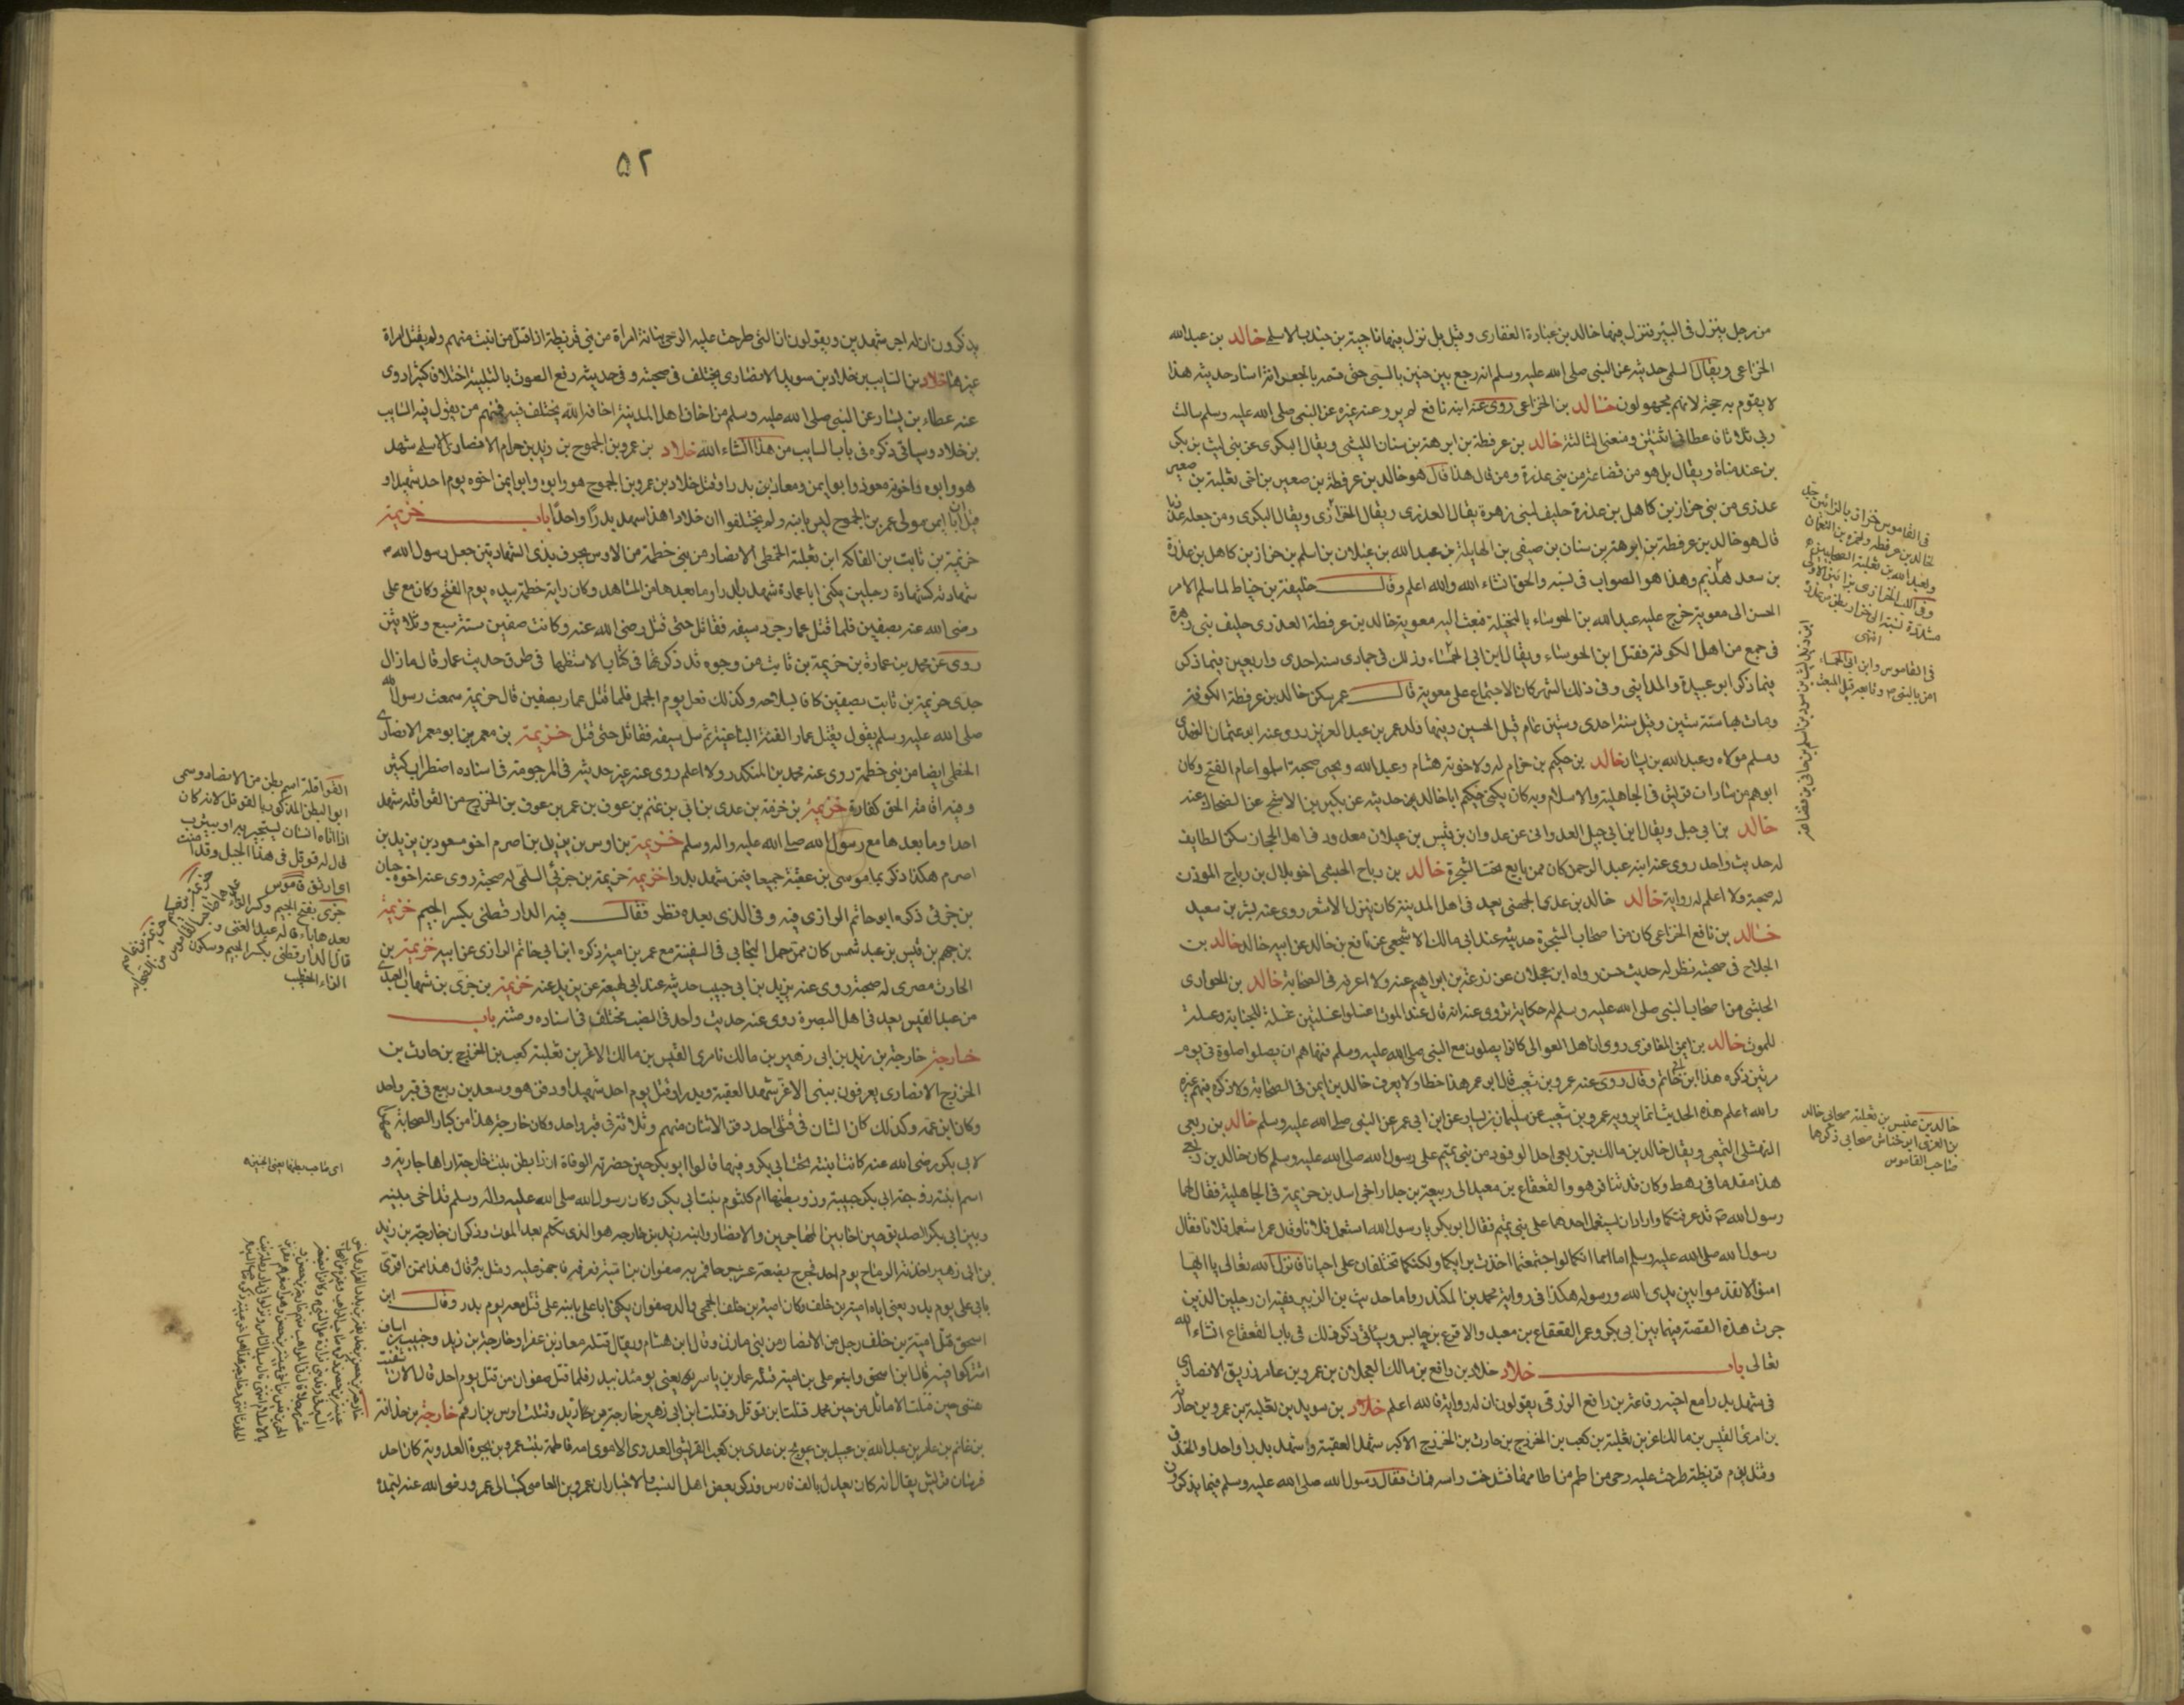 من رجل ينزل في البير فنزل فيها خالد بن عبادة الغفاري وقيل بل نزل فيها ناجية بن جندب الاسلمي خالد بن عبد الله
الخزاعي ويقال السلمي حديثه عن النبي صلى الله عليه وسلم انه رجع يوم حنين بالسبي حتى قسمه بالجعرانة اسناد حديثه هذا
لا يقوم به حجة لانهم مجهولون خالد بن الخزاعي روى عنه ابنه نافع لم يرو عنه غيره عن النبي صلى الله عليه وسلم سالت
ربي ثلاثا فاعطاني اثنتين ومنعني الثالثة خالد بن عرفطة بن ابرهة بن سنان الليثي ويقال البكري من بني ليث بن بكر
بن عبد مناة ويقال بل هو من قضاعة من بني عذرة ومن قال هذا قال هو خالد بن عرفطة بن صعير بن اخي ثعلبة بن صعير
عذري من بني حزاز بن كاهل بن عذرة حليف لبني زهرة يقال العذري ويقال الخزازي ويقال البكري ومن جعله عذريا
قال هو خالد بن عرفطة بن ابرهة بن سنان بن صيفي بن الهايلة بن عبد الله بن غيلان بن اسلم بن حزاز بن كاهل بن عذرة
بن سعد هذيم وهذا هو الصواب في نسبه والحق انشاء الله والله اعلم وقال خليفة بن خياط لما سلم الامر
الحسن الى معوية خرج عليه عبد الله بن الحوساء بالنخيلة فبعث اليه معوية خالد بن عرفطة العذري حليف بني زهرة
في جمع من اهل الكوفة فقتل ابن الحوساء ويقال ابن ابي الحمساء وذلك في جمادى سنة احدى واربعين فيما ذكر
فيما ذكر ابو عبيدة والمدايني وفي ذلك الشهر كان الاجتماع على معوية قال عمر سكن خالد بن عرفطة الكوفة
ومات بها سنة ستين وقيل سنة احدى وستين عام قتل الحسين وفيها ولد عمر بن عبد العزيز روى عنه ابو عثمان النهدي
ومسلم مولاه وعبد الله بن يسار خالد بن حكيم بن حزام له ولاخوته هشام وعبد الله ويحيى صحبة اسلموا عام الفتح وكان
ابوهم من سادات قريش في الجاهلية والاسلام وبه كان يكنى حكيم ابا خالد حديثه عن بكير بن الاشج عن الضحاك عنه
خالد بن ابي جبل ويقال ابن ابي جيل العدواني من عدوان بن قيس بن عيلان معدود في اهل الحجاز سكن الطايف
له حديث واحد روى عنه ابنه عبد الرحمن كان ممن بايع تحت الشجرة خالد بن رباح الحبشي اخو بلال بن رباح الموذن
له صحبة ولا اعلم له رواية خالد خالد بن عدي الجهني يعد في اهل المدينة كان ينزل الاشعر روى عنه بسر بن سعيد
خالد بن نافع الخزاعي كان من اصحاب الشجرة حديثه عند ابي مالك الاشجعي عن نافع بن خالد عن ابيه خالد خالد بن
اللجلاج في صحبته نظر له حديث حسن رواه ابن عجلان عن زرعة بن ابراهيم عنه ولا اعرفه في الصحابة خالد بن الحواري
الحبشي من اصحاب النبي صلى الله عليه وسلم له حكاية تروى عنه انه قال عند الموت اغسلوا غسلتين غسلة للجنابة وغسلة
للموت خالد بن ايمن المعافري روى ان اهل العوالي كانوا يصلون مع النبي صلى الله عليه وسلم فنهاهم ان يصلوا صلوة في يوم
مرتين ذكره هذا ابن ابي حاتم وقال روى عنه عمرو بن شعيب قال ابو عمر هذا خطا ولا يعرف خالد بن ايمن في الصحابة ولا ذكره فيهم غيره
والله اعلم هذه الحديث انما يرويه عمرو بن شعيب عن سليمان بن يسار عن ابن ابي عمر عن النبي صلى الله عليه وسلم خالد بن ربعي
النهشلي التميمي ويقال خالد بن مالك بن ربعي احد الوفود من بني تميم على رسول الله صلى الله عليه وسلم كان خالد بن ربعي
هذا مقدما في رهطه وكان قد تنافر هو والقعقاع بن معبد الى ربيعة بن جدار اخي اسد بن خزيمة في الجاهلية فقال لهما
رسول الله قد عرفتكما واراد ان يستعمل احدهما على بني تميم فقال ابو بكر يا رسول الله استعمل فلانا وقال عمر استعمل فلانا فقال
رسول الله صلى الله عليه وسلم اما انكما لو اجتمعتما اخذت برايكما ولكنكما تختلفان علي احيانا فانزل الله تعالى يا ايها
امنوا لا تقدموا بين يدي الله ورسوله هكذا في رواية محمد بن المنكدر واما حديث بن الزبير ففيه ان رجلين الذين
جرت هذه القصة فيهما بين ابي بكر وعمر القعقاع بن معبد والاقرع بن حابس وسياتي ذكر ذلك في باب القعقاع انشاء الله
تعالى باب خلاد خلاد بن رافع بن مالك العجلان بن عمرو بن عامر زريق الانصاري
في شهد بدرا مع اخيه رفاعة بن رافع الزرقي يقولون ان له رواية فالله اعلم خلاد بن سويد بن ثعلبة بن عمرو بن حارثة
بن امرئ القيس بن مالك اغر بن ثعلبة بن كعب بن الخزرج بن حارث بن الخزرج الاكبر شهد العقبة واشهد بدرا واحدا والخندق
وقتل يوم قريظة طرحت عليه رحى من اطم من اطامها فشدخت راسه فمات فقال رسول الله صلى الله عليه وسلم فيما يذكرون
في القاموس خزاز بالزائين جد
لخالد بن عرفطة ولحمزة بن النعمان
ولعبد الله بن ثعلبة الصحابيين
انتهى
في القاموس وابن ابي الحمساء
امن بالنبي وتابعه قبل المبعث
خالد بن عقبس بن ثعلبة صحابي خالد
صحابي ذكرهما
صاحب القاموس
۵۲
يذكرون ان له اجر شهيدين ويقولون ان التي طرحت عليه الرحى بنانة امراة من بني قريظة اذا قتل من انبت منهم ولم يقتل امراة
غيرها خلاد بن السايب بن خلاد بن سويد الانصاري يختلف في صحبته وفي حديثه رفع الصوت بالتلبية اختلاف كثير روى
عنه عطاء بن يسار عن النبي صلى الله عليه وسلم من اخاف اهل المدينة اخافه الله يختلف فيه فمنهم من يقول فيه السايب
بن خلاد وسياتي ذكره في باب السايب من هذا انشاء الله خلاد بن عمرو بن الجموح بن زيد بن حرام الانصاري السلمي شهد
هو وابوه واخوته معوذ وابو ايمن ومعاذ بن بدرا وقتل خلاد بن عمرو بن الجموح هو وابوه وابو ايمن اخوه يوم احد شهيدا و
قيل ان ابا ايمن مولى عمر بن الجموح ليس بابنه ولم يختلفوا ان خلادا هذا شهد بدرا واحدا باب خزيمة
خزيمة بن ثابت بن الفاكه ابن ثعلبة الخطمي الانصار من بني خطمة من الاوس يعرف بذي الشهادتين جعل رسول الله
شهادته كشهادة رجلين يكنى ابا عمارة شهد بدرا وما بعدها من المشاهد وكان راية خطمة بيده يوم الفتح وكان مع علي
رضي الله عنه بصفين فلما قتل عمار جرد سيفه فقاتل حتى قتل رضي الله عنه وكانت صفين سنة سبع وثلاثين
روى عن محمد بن عمارة بن خزيمة بن ثابت من وجوه قد ذكرتها في كتاب الاستظهار في طرق حديث عمار قال ما زال
جدي خزيمة بن ثابت بصفين كافا سلاحه وكذلك فعل يوم الجمل فلما قتل عمار بصفين قال خزيمة سمعت رسول الله
صلى الله عليه وسلم يقول يقتل عمار الفئة الباغية ثم سل سيفه فقاتل حتى قتل خزيمة بن معمر بن ابو معمر الانصاري
الخطمي ايضا من بني خطمة روى عنه محمد بن المنكدر ولا اعلم روى عنه غيره حديثه في المرجومة في اسناده اضطراب كثير
وفيه اقامة الحق كفارة خزيمة بن خزمة بن عدي بن ابي بن غنم بن عوف بن عمر بن عوف بن الخزرج من القواقلة شهد
احدا وما بعدها مع رسول الله صلى الله عليه واله وسلم خزيمة بن اوس بن يزيد بن اصرم اخو مسعود بن يزيد بن
اصرم هكذا ذكر بما موسى بن عقبة جميعا فيمن شهد بدرا خزيمة خزيمة بن جزئي السلمي له صحبة روى عنه اخوه حبان
بن جزئ ذكره ابو حاتم الرازي فيه وفي الذي بعده نظر فقال فيه الدارقطني بكسر الجيم خزيمة
بن جهم بن قيس بن عبد شمس كان ممن حمل النجاشي في السفينة مع عمر بن امية ذكره ابن ابي حاتم الرازي عن ابيه خزيمة بن
الحارث مصري له صحبة روى عنه يزيد بن ابي حبيب حديثه عند ابن لهيعة عن يزيد عنه خزيمة بن جزي بن شهاب العبدي
من عبد القيس يعد في اهل البصرة روى عنه حديث واحد في الضب مختلف في اسناده ومتنه باب
خارجة خارجة بن زيد بن ابي زهير بن مالك بن امرئ القيس بن مالك الاغر بن ثعلبة كعب بن الخزرج بن حارث بن
الخزرج الانصاري يعرفون ببني الاغر شهد العقبة وبدرا وقتل يوم احد شهيدا ودفن هو وسعد بن ربيع في قبر واحد
وكان ابن عمه وكذلك كان الشان في قتلى احد دفن الاثنان منهم وثلاثة في قبر واحد وكان خارجة هذا من كبار الصحابة
لابي بكر رضي الله عنه كانت ابنته تحت ابي بكر وفيها قالوا ابو بكر حين حضرته الوفاة ان ذا بطن بنت خارجة اراها جارية و
اسم ابنته زوجة ابي بكر حبيبة وذو بطنها ام كلثوم بنت ابي بكر وكان رسول الله صلى الله عليه واله وسلم قد اخى بينه
وبين ابي بكر الصديق حين اخا بين المهاجرين والانصار وابنه زيد بن خارجه هو الذي تكلم بعد الموت وذكر ان خارجة بن زيد
بن ابي زهير اخذته الرماح يوم احد فجرح بضعة عشر جرحا فمر به صفوان بن امية فعرفه فاجهز عليه ومثل به وقال هذا ممن اغرى
بابي علي يوم بدر يعني اباه امية بن خلف وكان امية بن خلف الجمحي والد صفوان يكنى ابا علي بابنه علي قتل معه يوم بدر وقال ابن
اسحق قتل امية بن خلف رجل من الانصار من بني مازن وقال ابن هشام ويقال قتله معاذ بن عفرا وخارجة بن زيد وخبيب بن اساف
اشتركوا فيه قال ابن اسحق وابنه علي بن امية قتله عمار بن ياسر يعني يومئذ ببدر فلما قتل صفوان من قتل يوم احد قال الان
حين قتلت الاماثل من حين محمد قتلت ابن نوقل وقتلت ابن ابي زهير خارجة بن زيد وقتلت اوس بن ارقم خارجة بن حذافة
بن غانم بن عامر بن عبد الله بن عبيد بن عويج بن عدي بن كعب القرشي العدوي الاموي امه فاطمة بنت عمرو بن بجرة العدوية كان احد
فرسان قريش يقال انه كان يعدل بالف فارس وذكر بعض اهل النسب والاخبار ان عمرو بن العاص كتب الى عمر ورضي الله عنه ليمده
القواقلة اسم بطن من الانصار وسمى
ابو البطن المذكور بالقوقل لانه كان
اذا اتاه انسان ليستجير به او بيثرب
قال له قوقل في هذا الجبل وقد امنت
اي ارتق قاموس
جزى بفتح الجيم وكسر الزاء
بعدها ياء قاله عبد الغني و
قال الدارقطني بكسر الجيم وسكون
الزاء الخطيب